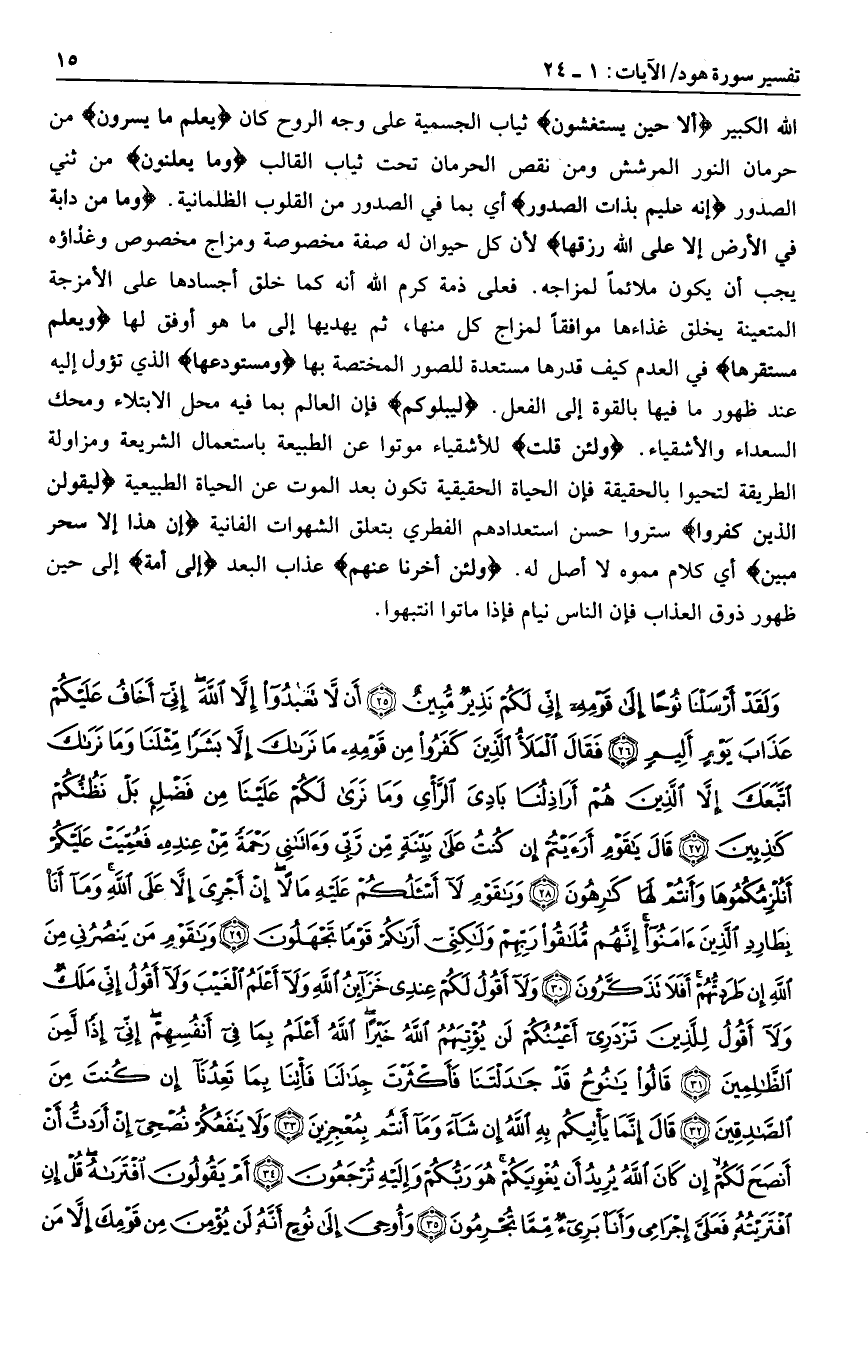 تفسير سورة هود/ الآيات: ١ - ٢٤
١٥
الله الكبير ﴿ألا حين يستغشون﴾ ثياب الجسمية على وجه الروح كان ﴿يعلم ما يسرون﴾ من
حرمان النور المرشش ومن نقص الحرمان تحت ثياب القالب ﴿وما يعلنون﴾ من ثني
الصدور ﴿إنه عليم بذات الصدور﴾ أي بما في الصدور من القلوب الظلمانية. ﴿وما من دابة
في الأرض إلا على الله رزقها﴾ لأن كل حيوان له صفة مخصوصة ومزاج مخصوص وغذاؤه
يجب أن يكون ملائماً لمزاجه. فعلى ذمة كرم الله أنه كما خلق أجسادها على الأمزجة
المتعينة يخلق غذاءها موافقاً لمزاج كل منها، ثم يهديها إلى ما هو أوفق لها ﴿ويعلم
مستقرها﴾ في العدم كيف قدرها مستعدة للصور المختصة بها ﴿ومستودعها﴾ الذي تؤول إليه
عند ظهور ما فيها بالقوة إلى الفعل. ﴿ليبلوكم﴾ فإن العالم بما فيه محل الابتلاء ومحك
السعداء والأشقياء. ﴿ولئن قلت﴾ للأشقياء موتوا عن الطبيعة باستعمال الشريعة ومزاولة
الطريقة لتحيوا بالحقيقة فإن الحياة الحقيقية تكون بعد الموت عن الحياة الطبيعية ﴿ليقولن
الذين كفروا﴾ ستروا حسن استعدادهم الفطري بتعلق الشهوات الفانية ﴿إن هذا إلا سحر
مبين﴾ أي كلام مموه لا أصل له. ﴿ولئن أخرنا عنهم﴾ عذاب البعد ﴿إلى أمة﴾ إلى حين
ظهور ذوق العذاب فإن الناس نيام فإذا ماتوا انتبهوا.
وَلَقَدْ أَرْسَلْنَا نُوحًا إِلَىٰ قَوْمِهِۦٓ إِنِّى لَكُمْ نَذِيرٌ مُّبِينٌ ﴿٢٥﴾ أَن لَّا تَعْبُدُوٓا۟ إِلَّا ٱللَّهَ ۖ إِنِّىٓ أَخَافُ عَلَيْكُمْ
عَذَابَ يَوْمٍ أَلِيمٍ ﴿٢٦﴾ فَقَالَ ٱلْمَلَأُ ٱلَّذِينَ كَفَرُوا۟ مِن قَوْمِهِۦ مَا نَرَىٰكَ إِلَّا بَشَرًا مِّثْلَنَا وَمَا نَرَىٰكَ
ٱتَّبَعَكَ إِلَّا ٱلَّذِينَ هُمْ أَرَاذِلُنَا بَادِىَ ٱلرَّأْىِ وَمَا نَرَىٰ لَكُمْ عَلَيْنَا مِن فَضْلٍۭ بَلْ نَظُنُّكُمْ
كَٰذِبِينَ ﴿٢٧﴾ قَالَ يَٰقَوْمِ أَرَءَيْتُمْ إِن كُنتُ عَلَىٰ بَيِّنَةٍ مِّن رَّبِّى وَءَاتَىٰنِى رَحْمَةً مِّنْ عِندِهِۦ فَعُمِّيَتْ عَلَيْكُمْ
أَنُلْزِمُكُمُوهَا وَأَنتُمْ لَهَا كَٰرِهُونَ ﴿٢٨﴾ وَيَٰقَوْمِ لَآ أَسْـَٔلُكُمْ عَلَيْهِ مَالًا ۖ إِنْ أَجْرِىَ إِلَّا عَلَى ٱللَّهِ ۚ وَمَآ أَنَا۠
بِطَارِدِ ٱلَّذِينَ ءَامَنُوٓا۟ ۚ إِنَّهُم مُّلَٰقُوا۟ رَبِّهِمْ وَلَٰكِنِّىٓ أَرَىٰكُمْ قَوْمًا تَجْهَلُونَ ﴿٢٩﴾ وَيَٰقَوْمِ مَن يَنصُرُنِى مِنَ
ٱللَّهِ إِن طَرَدتُّهُمْ ۚ أَفَلَا تَذَكَّرُونَ ﴿٣٠﴾ وَلَآ أَقُولُ لَكُمْ عِندِى خَزَآئِنُ ٱللَّهِ وَلَآ أَعْلَمُ ٱلْغَيْبَ وَلَآ أَقُولُ إِنِّى مَلَكٌ
وَلَآ أَقُولُ لِلَّذِينَ تَزْدَرِىٓ أَعْيُنُكُمْ لَن يُؤْتِيَهُمُ ٱللَّهُ خَيْرًا ۖ ٱللَّهُ أَعْلَمُ بِمَا فِىٓ أَنفُسِهِمْ ۖ إِنِّىٓ إِذًا لَّمِنَ
ٱلظَّٰلِمِينَ ﴿٣١﴾ قَالُوا۟ يَٰنُوحُ قَدْ جَٰدَلْتَنَا فَأَكْثَرْتَ جِدَٰلَنَا فَأْتِنَا بِمَا تَعِدُنَآ إِن كُنتَ مِنَ
ٱلصَّٰدِقِينَ ﴿٣٢﴾ قَالَ إِنَّمَا يَأْتِيكُم بِهِ ٱللَّهُ إِن شَآءَ وَمَآ أَنتُم بِمُعْجِزِينَ ﴿٣٣﴾ وَلَا يَنفَعُكُمْ نُصْحِىٓ إِنْ أَرَدتُّ أَنْ
أَنصَحَ لَكُمْ إِن كَانَ ٱللَّهُ يُرِيدُ أَن يُغْوِيَكُمْ ۚ هُوَ رَبُّكُمْ وَإِلَيْهِ تُرْجَعُونَ ﴿٣٤﴾ أَمْ يَقُولُونَ ٱفْتَرَىٰهُ ۖ قُلْ إِنِ
ٱفْتَرَيْتُهُۥ فَعَلَىَّ إِجْرَامِى وَأَنَا۠ بَرِىٓءٌ مِّمَّا تُجْرِمُونَ ﴿٣٥﴾ وَأُوحِىَ إِلَىٰ نُوحٍ أَنَّهُۥ لَن يُؤْمِنَ مِن قَوْمِكَ إِلَّا مَن